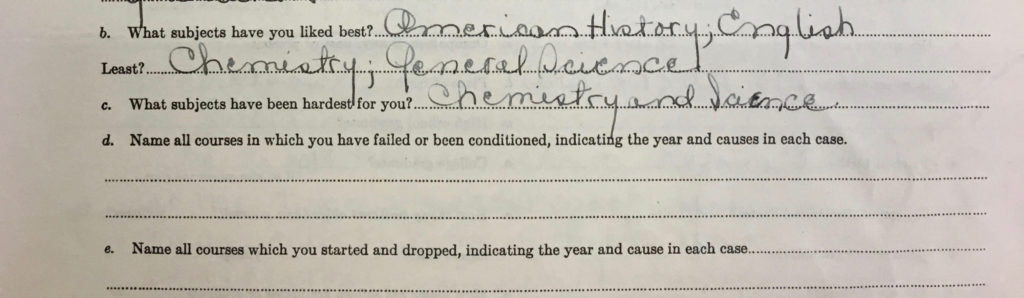 b. What subjects have you liked best? American History; English
Least? Chemistry; General Science
c. What subjects have been hardest for you? Chemistry and Science.
d. Name all courses in which you have failed or been conditioned, indicating the year and causes in each case.
e. Name all courses which you started and dropped, indicating the year and cause in each case.